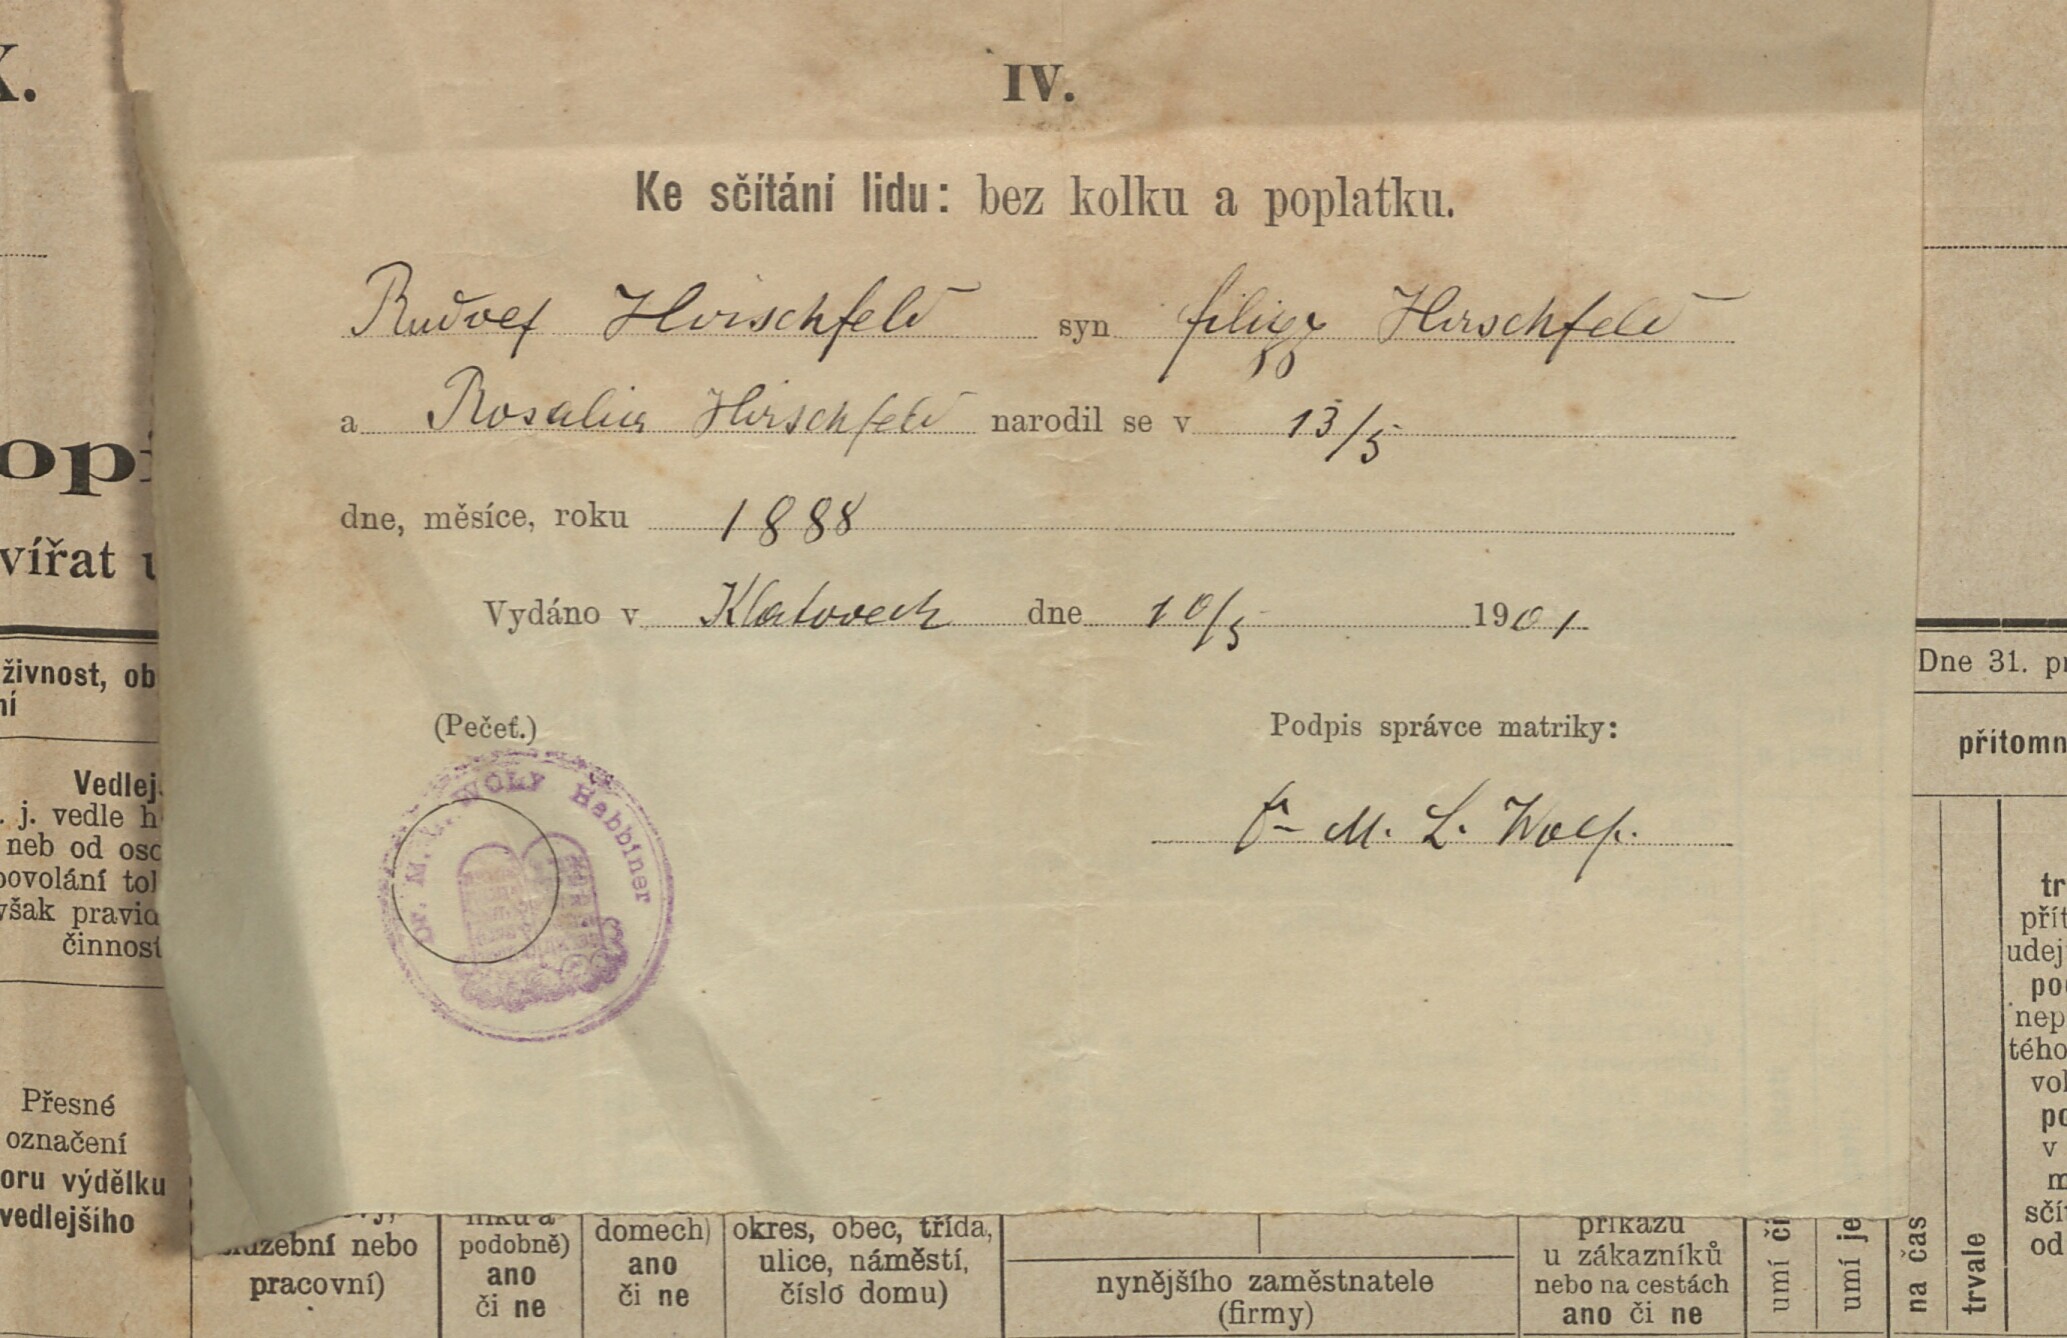 X.
IV.
Ke sčítání lidu: bez kolku a poplatku.
Rudolf Hirschfeld syn Filipp Hirschfeld
a Rosalia Hirschfeld narodil se v 13/5
dne, měsíce, roku 1888
Vydáno v Klatovech dne 10/5 1901
(Pečeť.)
Podpis správce matriky:
Dr. M. L. Wolf Rabbiner
Dr M. L. Wolf.
opi
vířat u
živnost, ob
ní
Vedlej
. j. vedle h
neb od oso
povolání tol
však pravid
činnost
Přesné
označení
oru výdělku
vedlejšího
služební nebo
pracovní)
podobně)
ano
či ne
domech)
ano
či ne
okres, obec, třída,
ulice, náměstí,
číslo domu)
nynějšího zaměstnatele
(firmy)
příkazu
u zákazníků
nebo na cestách
ano či ne
umí či
umí je
na čas
trvale
Dne 31. pr
přítomn
tr
přít
udej
poc
nep
tého
vol
po
v
m
sčít
od